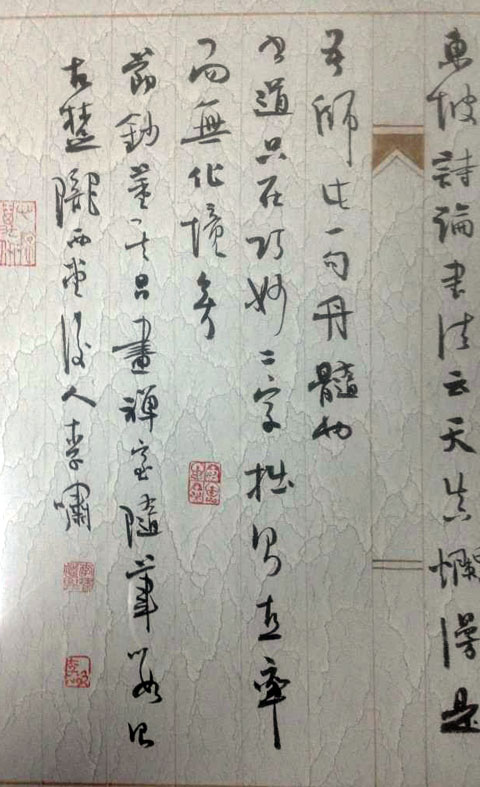 東坡詩論書法云天真爛漫是
吾師此一句丹髓也
書道只在巧妙二字拙則直率
而無化境矣
節鈔董其昌畫禪室隨筆
古楚隴西堂後人李嘯